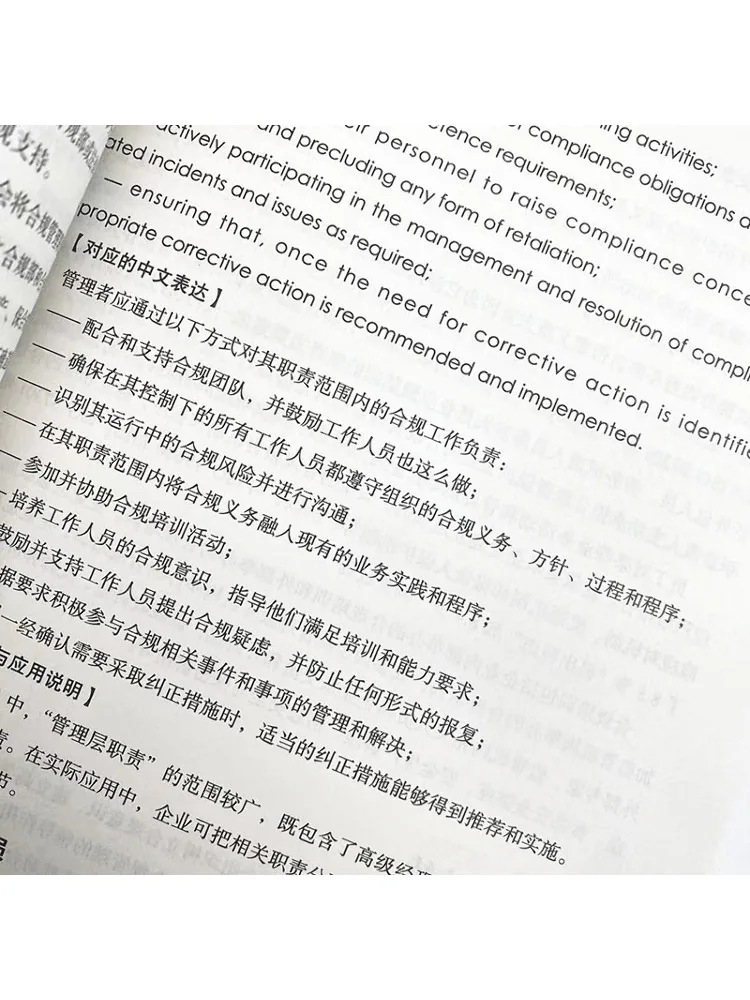 规部
观支持。
会将合规管
合规部
ing activities;
ence requirements;
personnel to raise compliance
and precluding any form of retaliation;
of compliance obligations
actively participating in the management and resolution of
ated incidents and issues as required;
— ensuring that, once the need for corrective action is
propriate corrective action is recommended and implemented.
【对应的中文表达】
管理者应通过以下方式对其职责范围内的合规工作负责：
—— 配合和支持合规团队，并鼓励工作人员也这么做；
—— 确保在其控制下的所有工作人员都遵守组织的合规义务、方针、过程和程序；
—— 识别其运行中的合规风险并进行沟通；
—— 在其职责范围内将合规义务融入现有的业务实践和程序；
— 参加并协助合规培训活动；
培养工作人员的合规意识，指导他们满足培训和能力要求；
鼓励并支持工作人员提出合规疑虑，并防止任何形式的报复；
据要求积极参与合规相关事件和事项的管理和解决；
一经确认需要采取纠正措施时，适当的纠正措施能够得到推荐和实施。
与应用说明】
中，“管理层职责”的范围较广，既包含了高级经理
责。在实际应用中，企业可把相关职责
节。
员